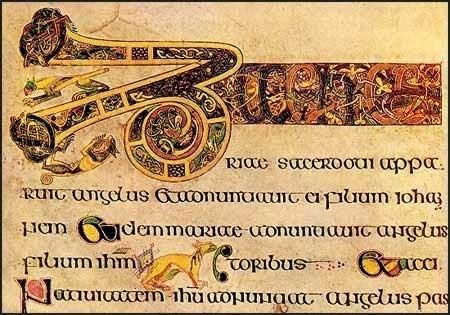 Z
riae sacerdoti appa
ruit angelus & adnuntiauit ei filium iohan
nem & idem mariae adnuntiauit angelus
filium ihm toribus & acci
Natiuitatem ihu adnuntiat angelus pas